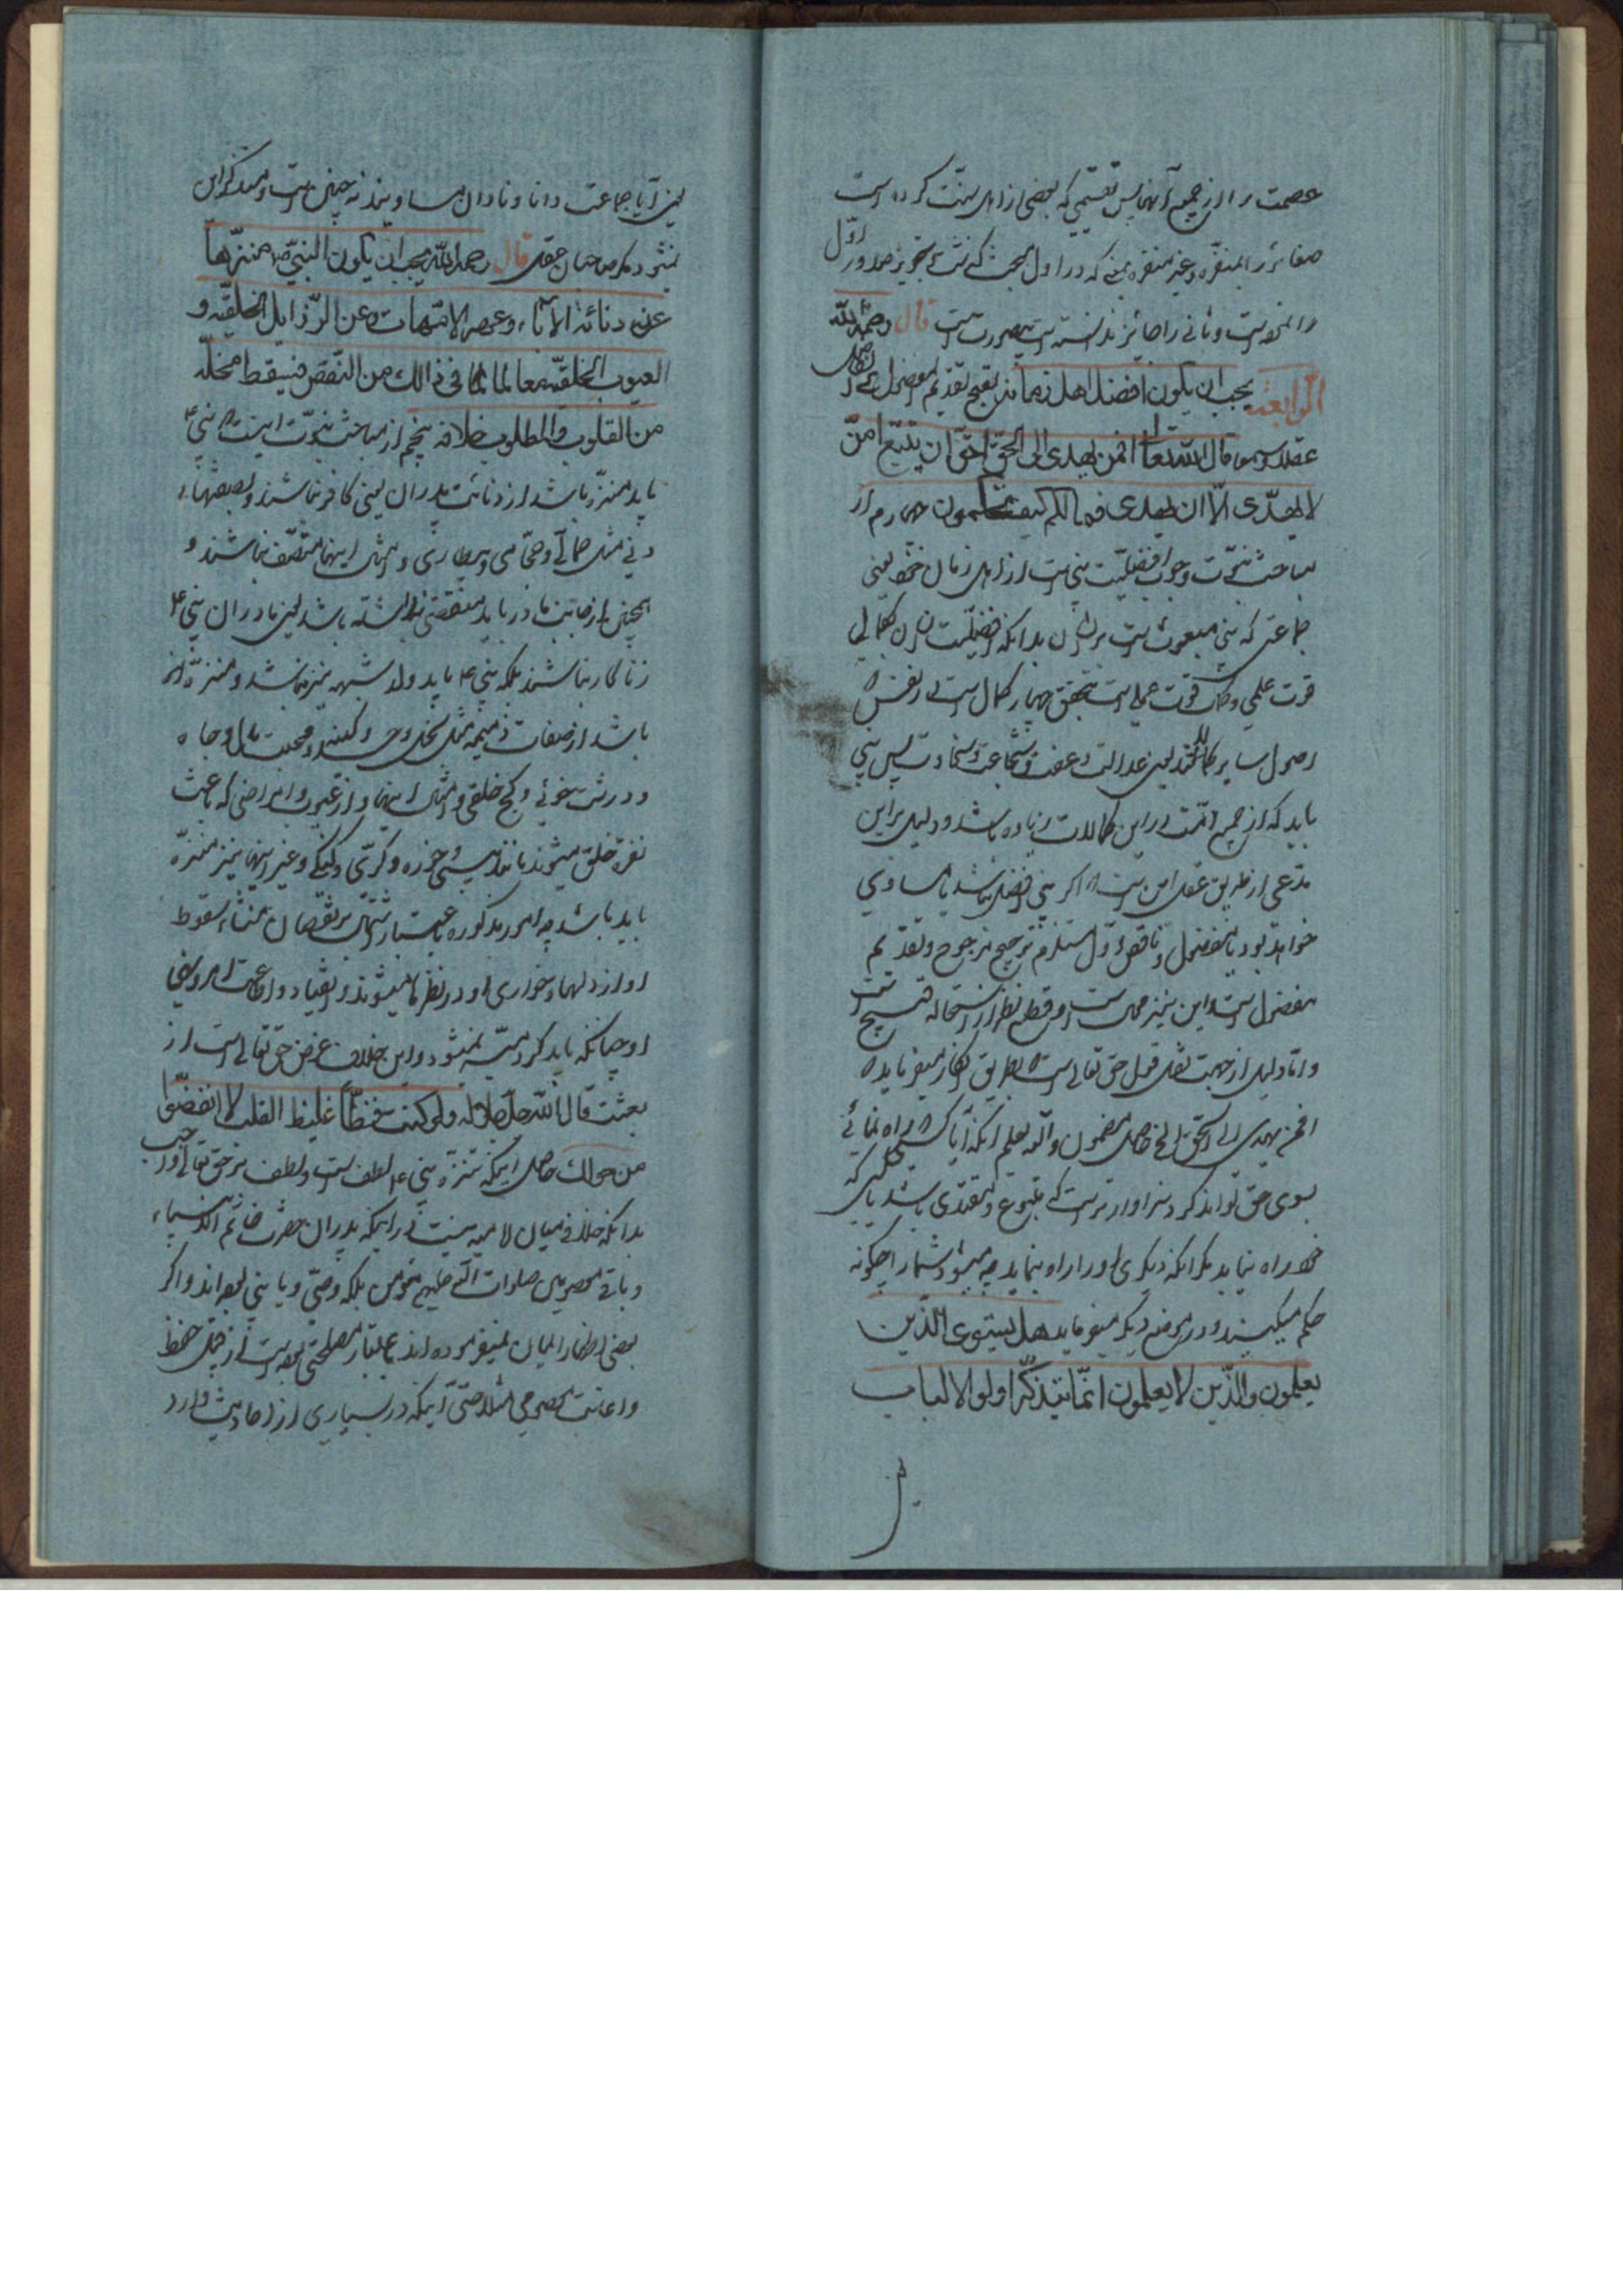 عصمت را از جمیع آنها پس تقسیمی که بعضی از اهل سنت کرده است
صغائر را بمنفره و غیر منفره که در اول بحث گذشت و تجویز صدور اول
را نموده است و ثانی را جائز ندانسته است بیصورتست قال رحمه الله
الرابعة یجب ان یکون افضل اهل زمانه لقبح تقدیم المفضول علی الفاضل
عقلا و سمعا قال الله تعا افمن یهدی الی الحق احق ان یتبع امن
لا یهدّی الا ان یهدی فما لکم کیف تحکمون چهارم از
مباحث نبوت وجوب افضلیت نبی است از اهل زمان خود یعنی
جماعتی که نبی مبعوث است بر ایشان بدانکه افضلیت انسان بکمال
قوت علمی و کمال قوت عملی است بتحقق چهار کمال است در نفس که
اصول سایر کمالاتند یعنی عدالت و عفت و شجاعت و سخاوت پس نبی
باید که از جمیع امت در این کمالات زیاده باشد و دلیل بر این
مدعی از طریق عقل این است که اگر نبی افضل نباشد یا مساوی
خواهد بود یا مفضول و ناقص اول مستلزم ترجیح مرجوح و تقدیم
مفضول است و این نیز محال است و قطع نظر از استحاله قبیح است
و اما دلیل از جهت نقل قول حق تعالی است که بطریق انکار میفرماید که
افمن یهدی الی الحق الخ حاصل مضمون والله یعلم آنکه آیا کسی که راه نمائی
بسوی حق تواند کرد سزاوارتر است که متبوع و مقتدی باشد یا کسی که
خود راه نیابد مگر آنکه دیگری او را راه بنماید چه میشود شما را چگونه
حکم میکنید و در موضع دیگر میفرماید هل یستوی الذین
یعلمون والذین لا یعلمون انما یتذکر اولو الالباب
یعنی آیا جماعت دانا و نادان مساویند نه چنین است و متذکر این
نمیشود مگر صاحبان عقل قال رحمه الله یجب ان یکون النبی ص منزها
عن دنائة الآباء و عهر الامهات و عن الرذایل الخلقیه و
العیوب الخلقیه معا لما فی ذالک من النقص فیسقط محله
من القلوب والمطلوب خلافه پنجم از مباحث نبوت اینست که نبی ع
باید منزه باشد از دنائت پدران یعنی کافر نباشند و بصفتهای
دنی مثل حمالی و حجامی و بیطاری و امثال اینها متصف نباشند و
همچنین از جانب مادر باید منقصتی نداشته باشد یعنی مادران نبی ع
زناکار نباشند بلکه نبی ع باید ولد شبهه نیز نباشد و منزه نیز
باشد از صفات ذمیمه مثل بخل و حسد و کینه و محبت مال و جاه
و درشت خوئی و کج خلقی و امثال اینها و از عیوب و امراضی که باعث
نفره خلق میشوند مانند پیسی و خوره و کری و گنگی و غیر اینها نیز منزه
باید باشد چه امور مذکوره باعتبار اشتمال بر نقصان منشاء سقوط
او از دلها و خواری او در نظرها میشوند و انقیاد و اطاعت امر و نهی
او چنانکه باید کرد میسر نمیشود و این خلاف غرض حق تعالی است از
بعثت قال الله جل جلاله ولو کنت فظّا غلیظ القلب لا انفضّوا
من حولک حاصل اینکه تنزه نبی ع لطف است و لطف بر حق تعالی واجب
بدانکه خلافی میان امامیه نیست در اینکه پدران حضرت خاتم انبیاء
و باقی معصومین صلوات الله علیهم مؤمن بلکه وصی و یا نبی بوده اند و اگر
بعضی اظهار ایمان نمیفرموده اند باعتبار مصلحتی بوده است از قبیل حفظ
و اعانت معصومی مثلا حتی آنکه در بسیاری از احادیث وارد